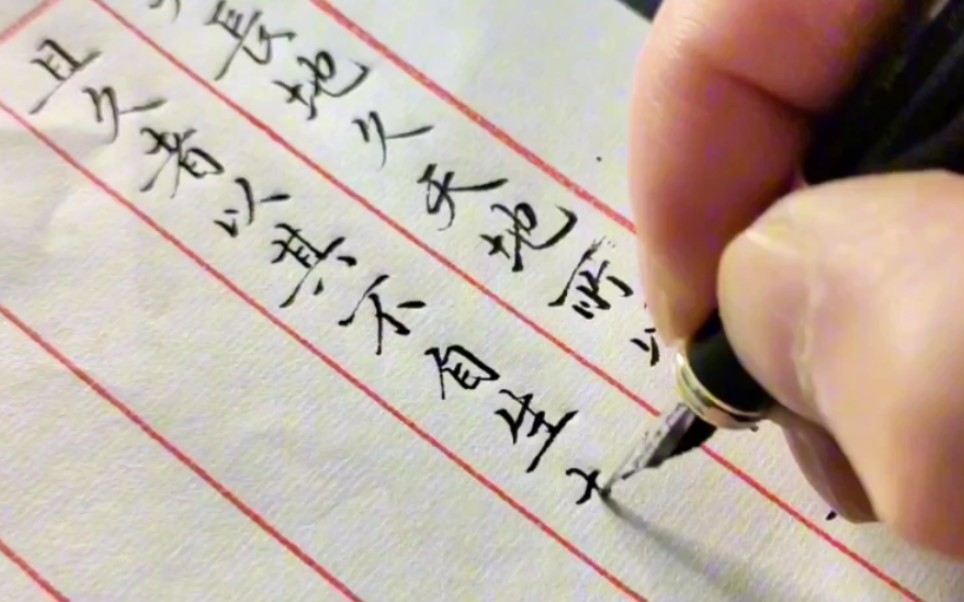 長地久天地所
且久者以其不自生